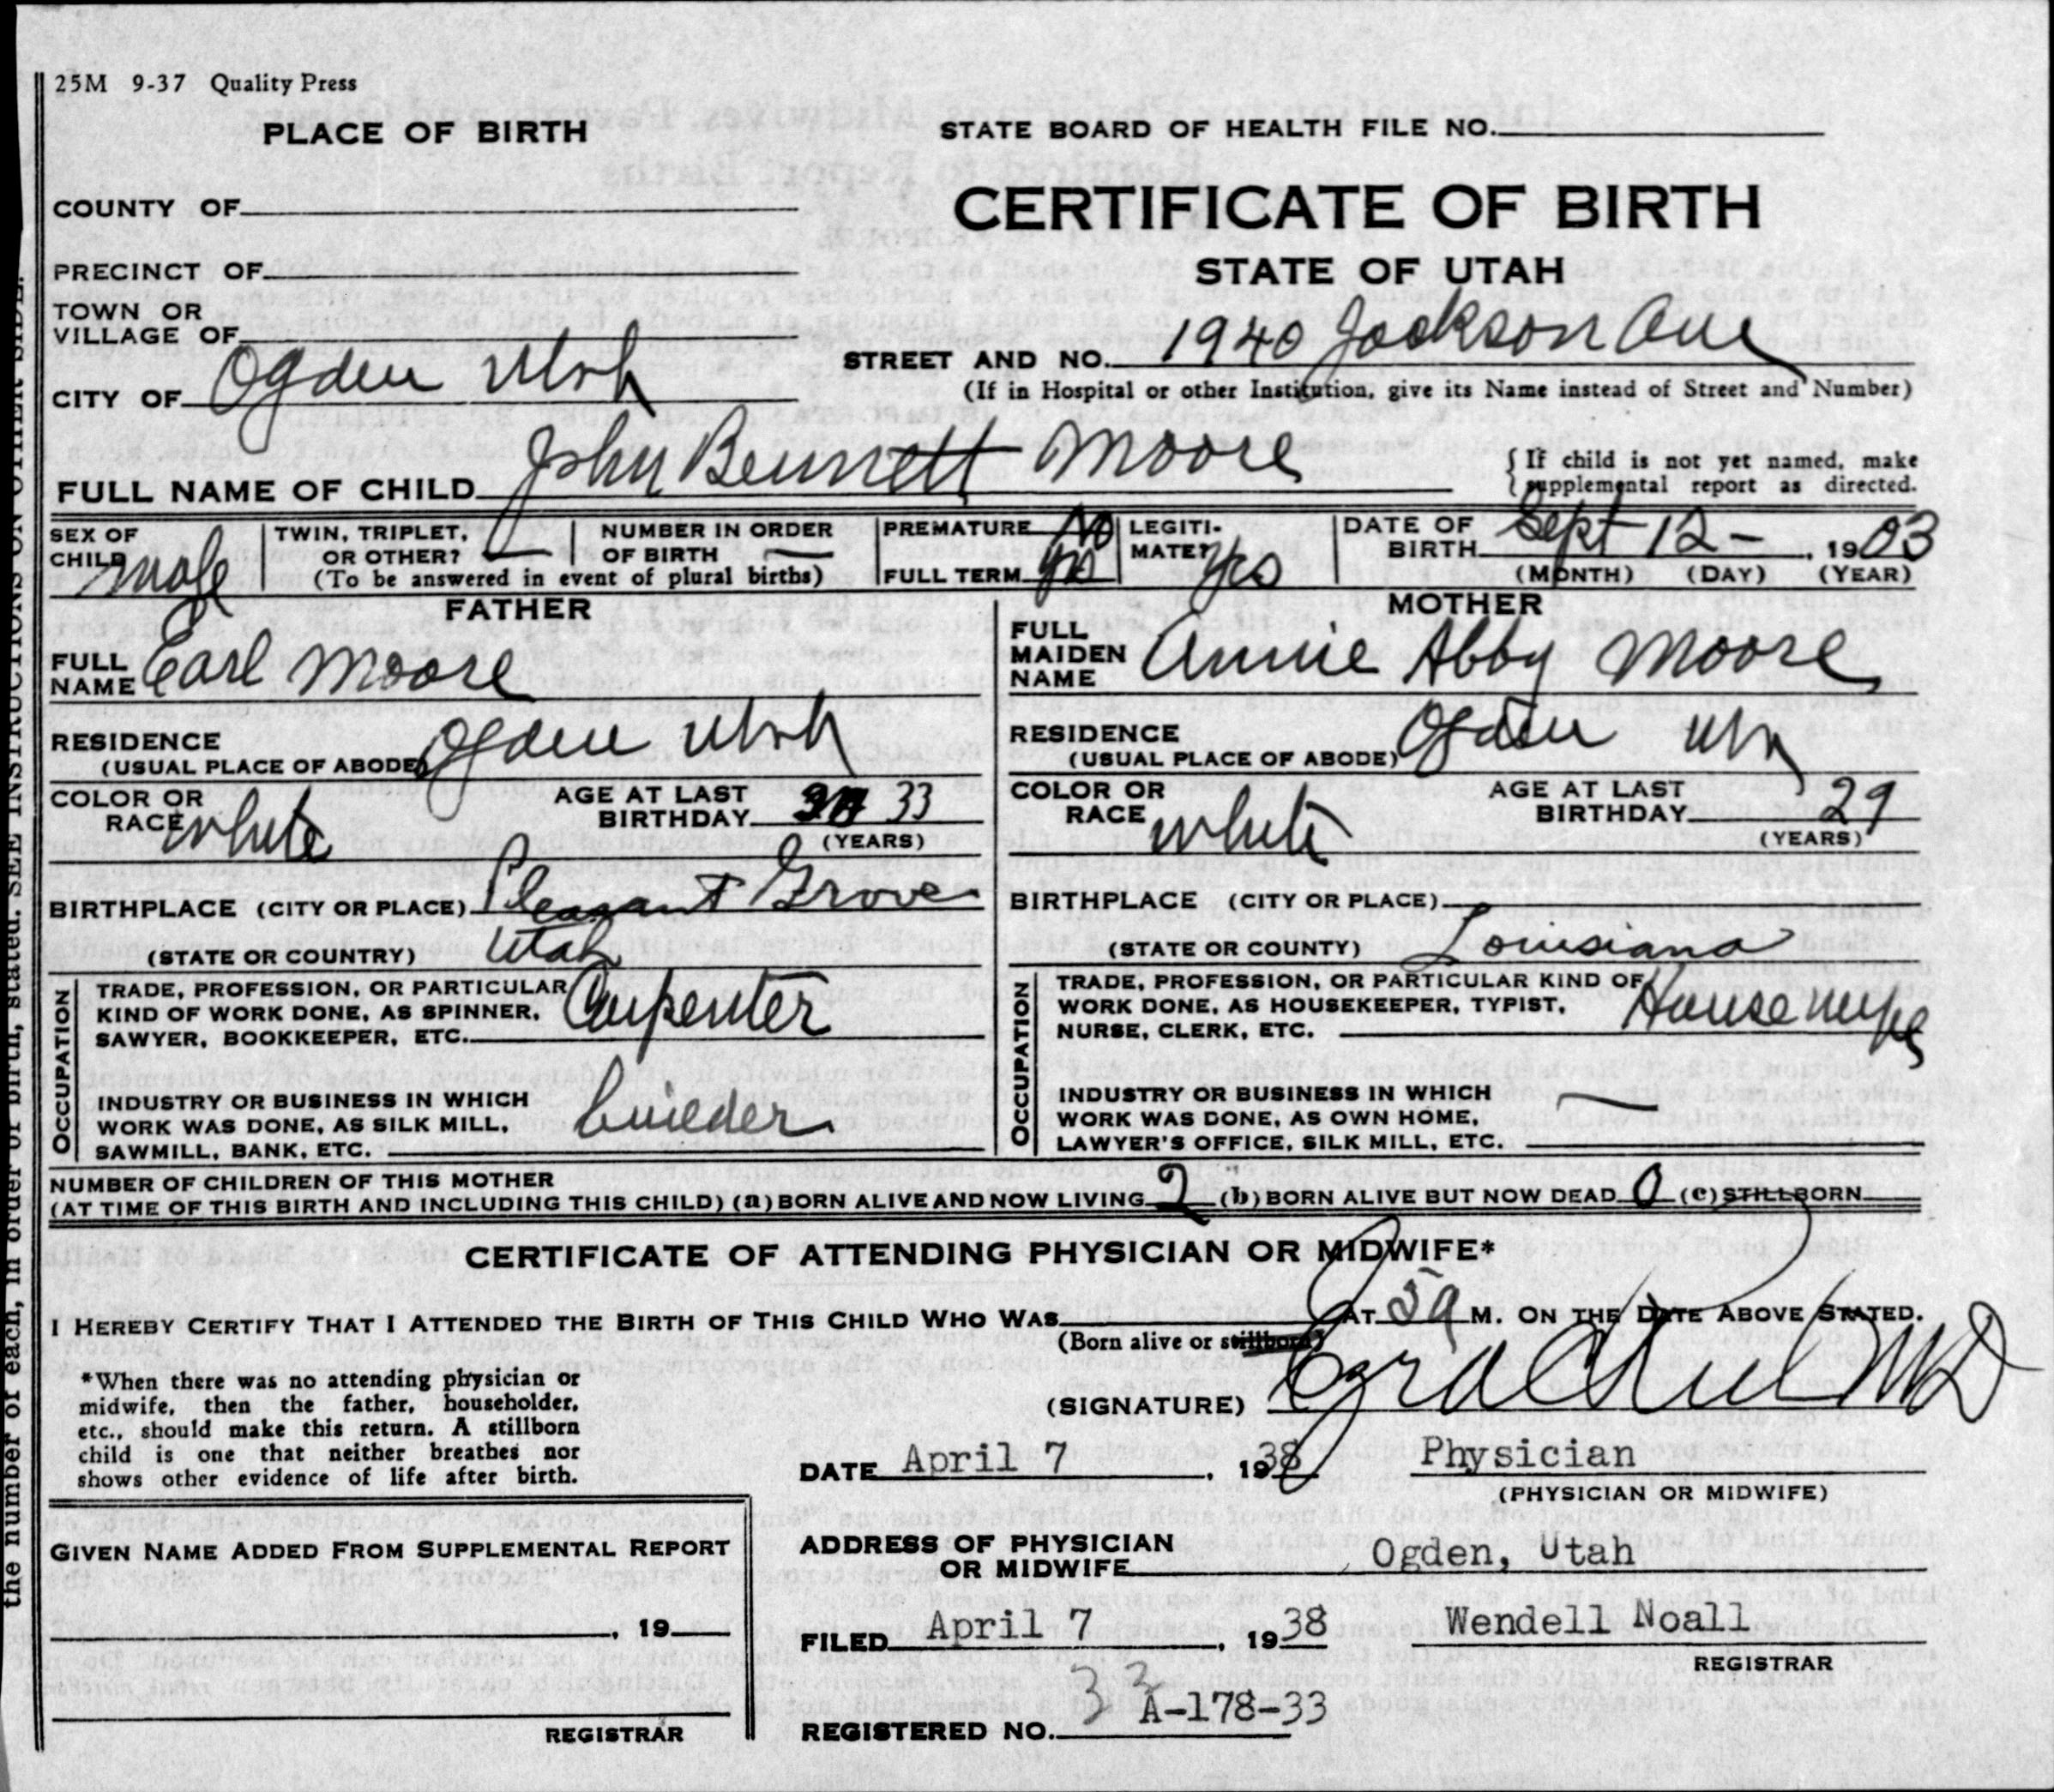 25M 9-37 Quality Press
PLACE OF BIRTH
STATE BOARD OF HEALTH FILE NO.
COUNTY OF
CERTIFICATE OF BIRTH
PRECINCT OF
STATE OF UTAH
TOWN OR
VILLAGE OF
STREET AND NO. 1940 Jackson Ave
(If in Hospital or other Institution, give its Name instead of Street and Number)
CITY OF Ogden Utah
FULL NAME OF CHILD John Bennett Moore
{ If child is not yet named, make
{ supplemental report as directed.
SEX OF
CHILD male
TWIN, TRIPLET,
OR OTHER? —
NUMBER IN ORDER
OF BIRTH —
(To be answered in event of plural births)
PREMATURE No
FULL TERM yes
LEGITI-
MATE? yes
DATE OF
BIRTH Sept 12 - , 1903
(MONTH) (DAY) (YEAR)
FATHER
FULL
NAME Earl Moore
RESIDENCE
(USUAL PLACE OF ABODE) Ogden Utah
COLOR OR
RACE white
AGE AT LAST
BIRTHDAY 33
(YEARS)
BIRTHPLACE (CITY OR PLACE) Pleasant Grove
(STATE OR COUNTRY) Utah
OCCUPATION
TRADE, PROFESSION, OR PARTICULAR
KIND OF WORK DONE, AS SPINNER,
SAWYER, BOOKKEEPER, ETC. Carpenter
INDUSTRY OR BUSINESS IN WHICH
WORK WAS DONE, AS SILK MILL,
SAWMILL, BANK, ETC. builder
MOTHER
FULL
MAIDEN
NAME Annie Abby Moore
RESIDENCE
(USUAL PLACE OF ABODE) Ogden Utah
COLOR OR
RACE white
AGE AT LAST
BIRTHDAY 29
(YEARS)
BIRTHPLACE (CITY OR PLACE)
(STATE OR COUNTY) Louisiana
OCCUPATION
TRADE, PROFESSION, OR PARTICULAR KIND OF
WORK DONE, AS HOUSEKEEPER, TYPIST,
NURSE, CLERK, ETC. Housewife
INDUSTRY OR BUSINESS IN WHICH
WORK WAS DONE, AS OWN HOME,
LAWYER'S OFFICE, SILK MILL, ETC. —
NUMBER OF CHILDREN OF THIS MOTHER
(AT TIME OF THIS BIRTH AND INCLUDING THIS CHILD) (a) BORN ALIVE AND NOW LIVING 2 (b) BORN ALIVE BUT NOW DEAD 0 (c) STILLBORN
CERTIFICATE OF ATTENDING PHYSICIAN OR MIDWIFE*
I HEREBY CERTIFY THAT I ATTENDED THE BIRTH OF THIS CHILD WHO WAS AT 5 a M. ON THE DATE ABOVE STATED.
(Born alive or stillborn)
*When there was no attending physician or
midwife, then the father, householder,
etc., should make this return. A stillborn
child is one that neither breathes nor
shows other evidence of life after birth.
(SIGNATURE) MD
DATE April 7 , 1938
Physician
(PHYSICIAN OR MIDWIFE)
GIVEN NAME ADDED FROM SUPPLEMENTAL REPORT
, 19
REGISTRAR
ADDRESS OF PHYSICIAN
OR MIDWIFE Ogden, Utah
FILED April 7 , 1938
Wendell Noall
REGISTRAR
REGISTERED NO. 3 2 A-178-33
the number of each, in order of birth, stated. SEE INSTRUCTIONS ON OTHER SIDE.